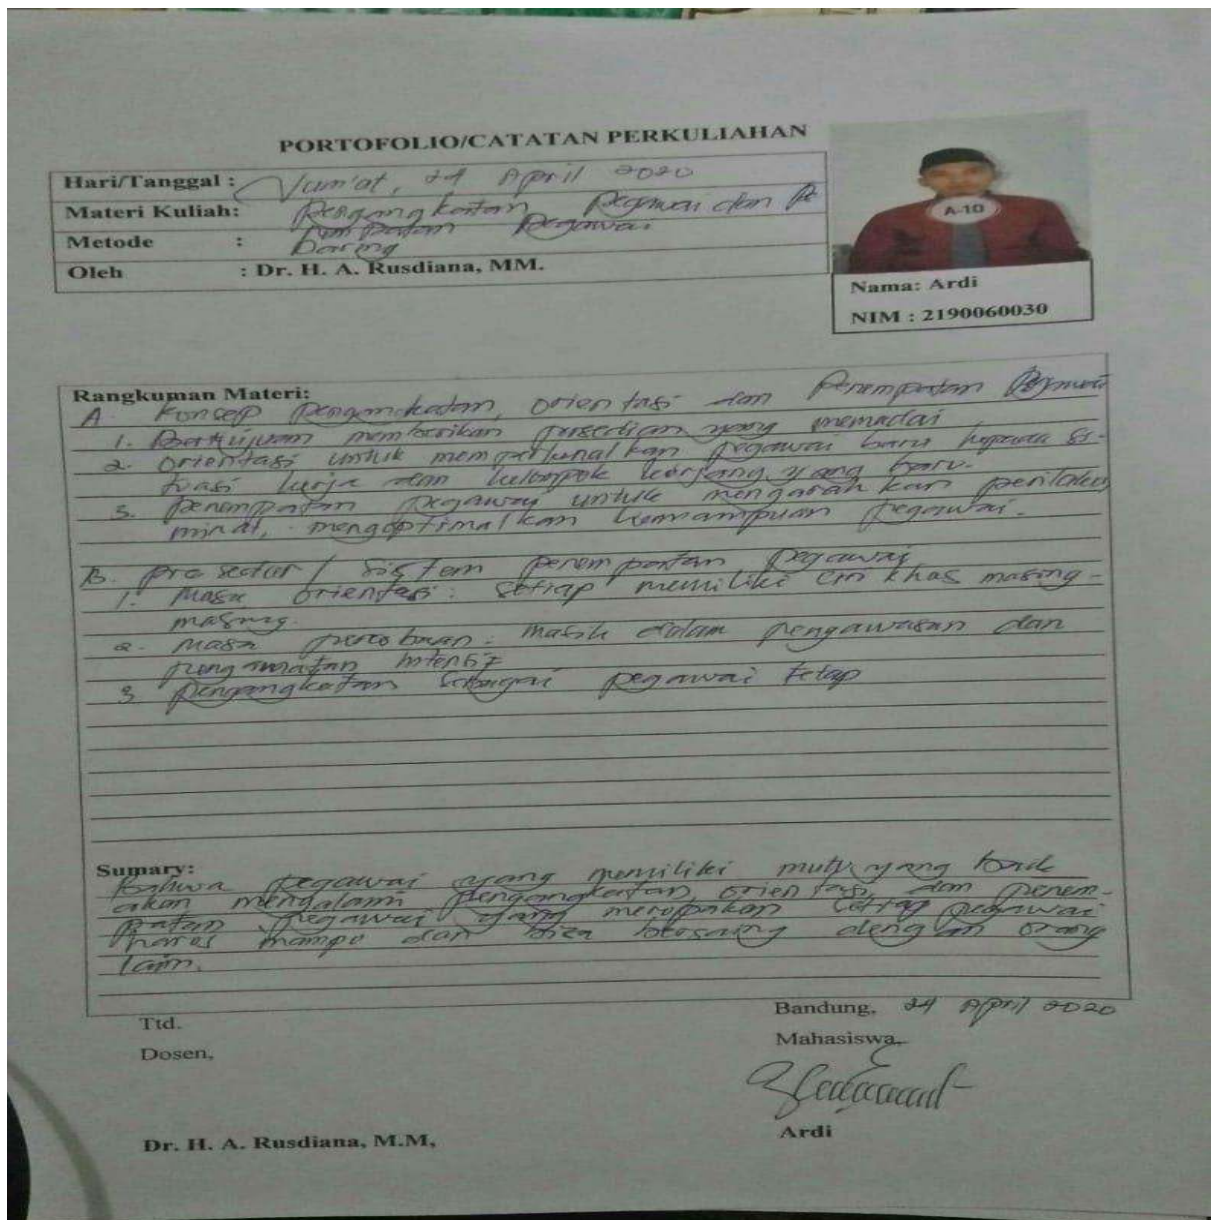 PORTOFOLIO/CATATAN PERKULIAHAN
Hari/Tanggal : Jum'at, 24 April 2020
Materi Kuliah: Pengangkatan Pegawai dan Pe
nempatan Pegawai
Metode : Daring
Oleh : Dr. H. A. Rusdiana, MM.
A-10
Nama: Ardi
NIM : 2190060030
Rangkuman Materi:
A. Konsep Pengangkatan, orientasi dan Penempatan Pegawai
1. Bertujuan memberikan yang memadai
2. orientasi untuk pegawai baru kepada si-
tuasi kerja dan kelompok yang baru.
3. Penempatan pegawai untuk mengarahkan perilaku
minat, mengoptimalkan kemampuan pegawai.
B. / Sistem penempatan pegawai
1. Masa orientasi : setiap memiliki ciri khas masing-
masing.
2. Masa percobaan : masih dalam pengawasan dan
pengamatan intensif
3 pengangkatan sebagai pegawai tetap
Sumary:
Bahwa pegawai yang memiliki mutu yang baik
akan mengalami pengangkatan, orientasi, dan penem-
patan pegawai yang merupakan setiap pegawai
harus mampu dan bisa bersaing dengan orang
lain.
Ttd.
Dosen,
Bandung, 24 April 2020
Mahasiswa
Dr. H. A. Rusdiana, M.M,
Ardi